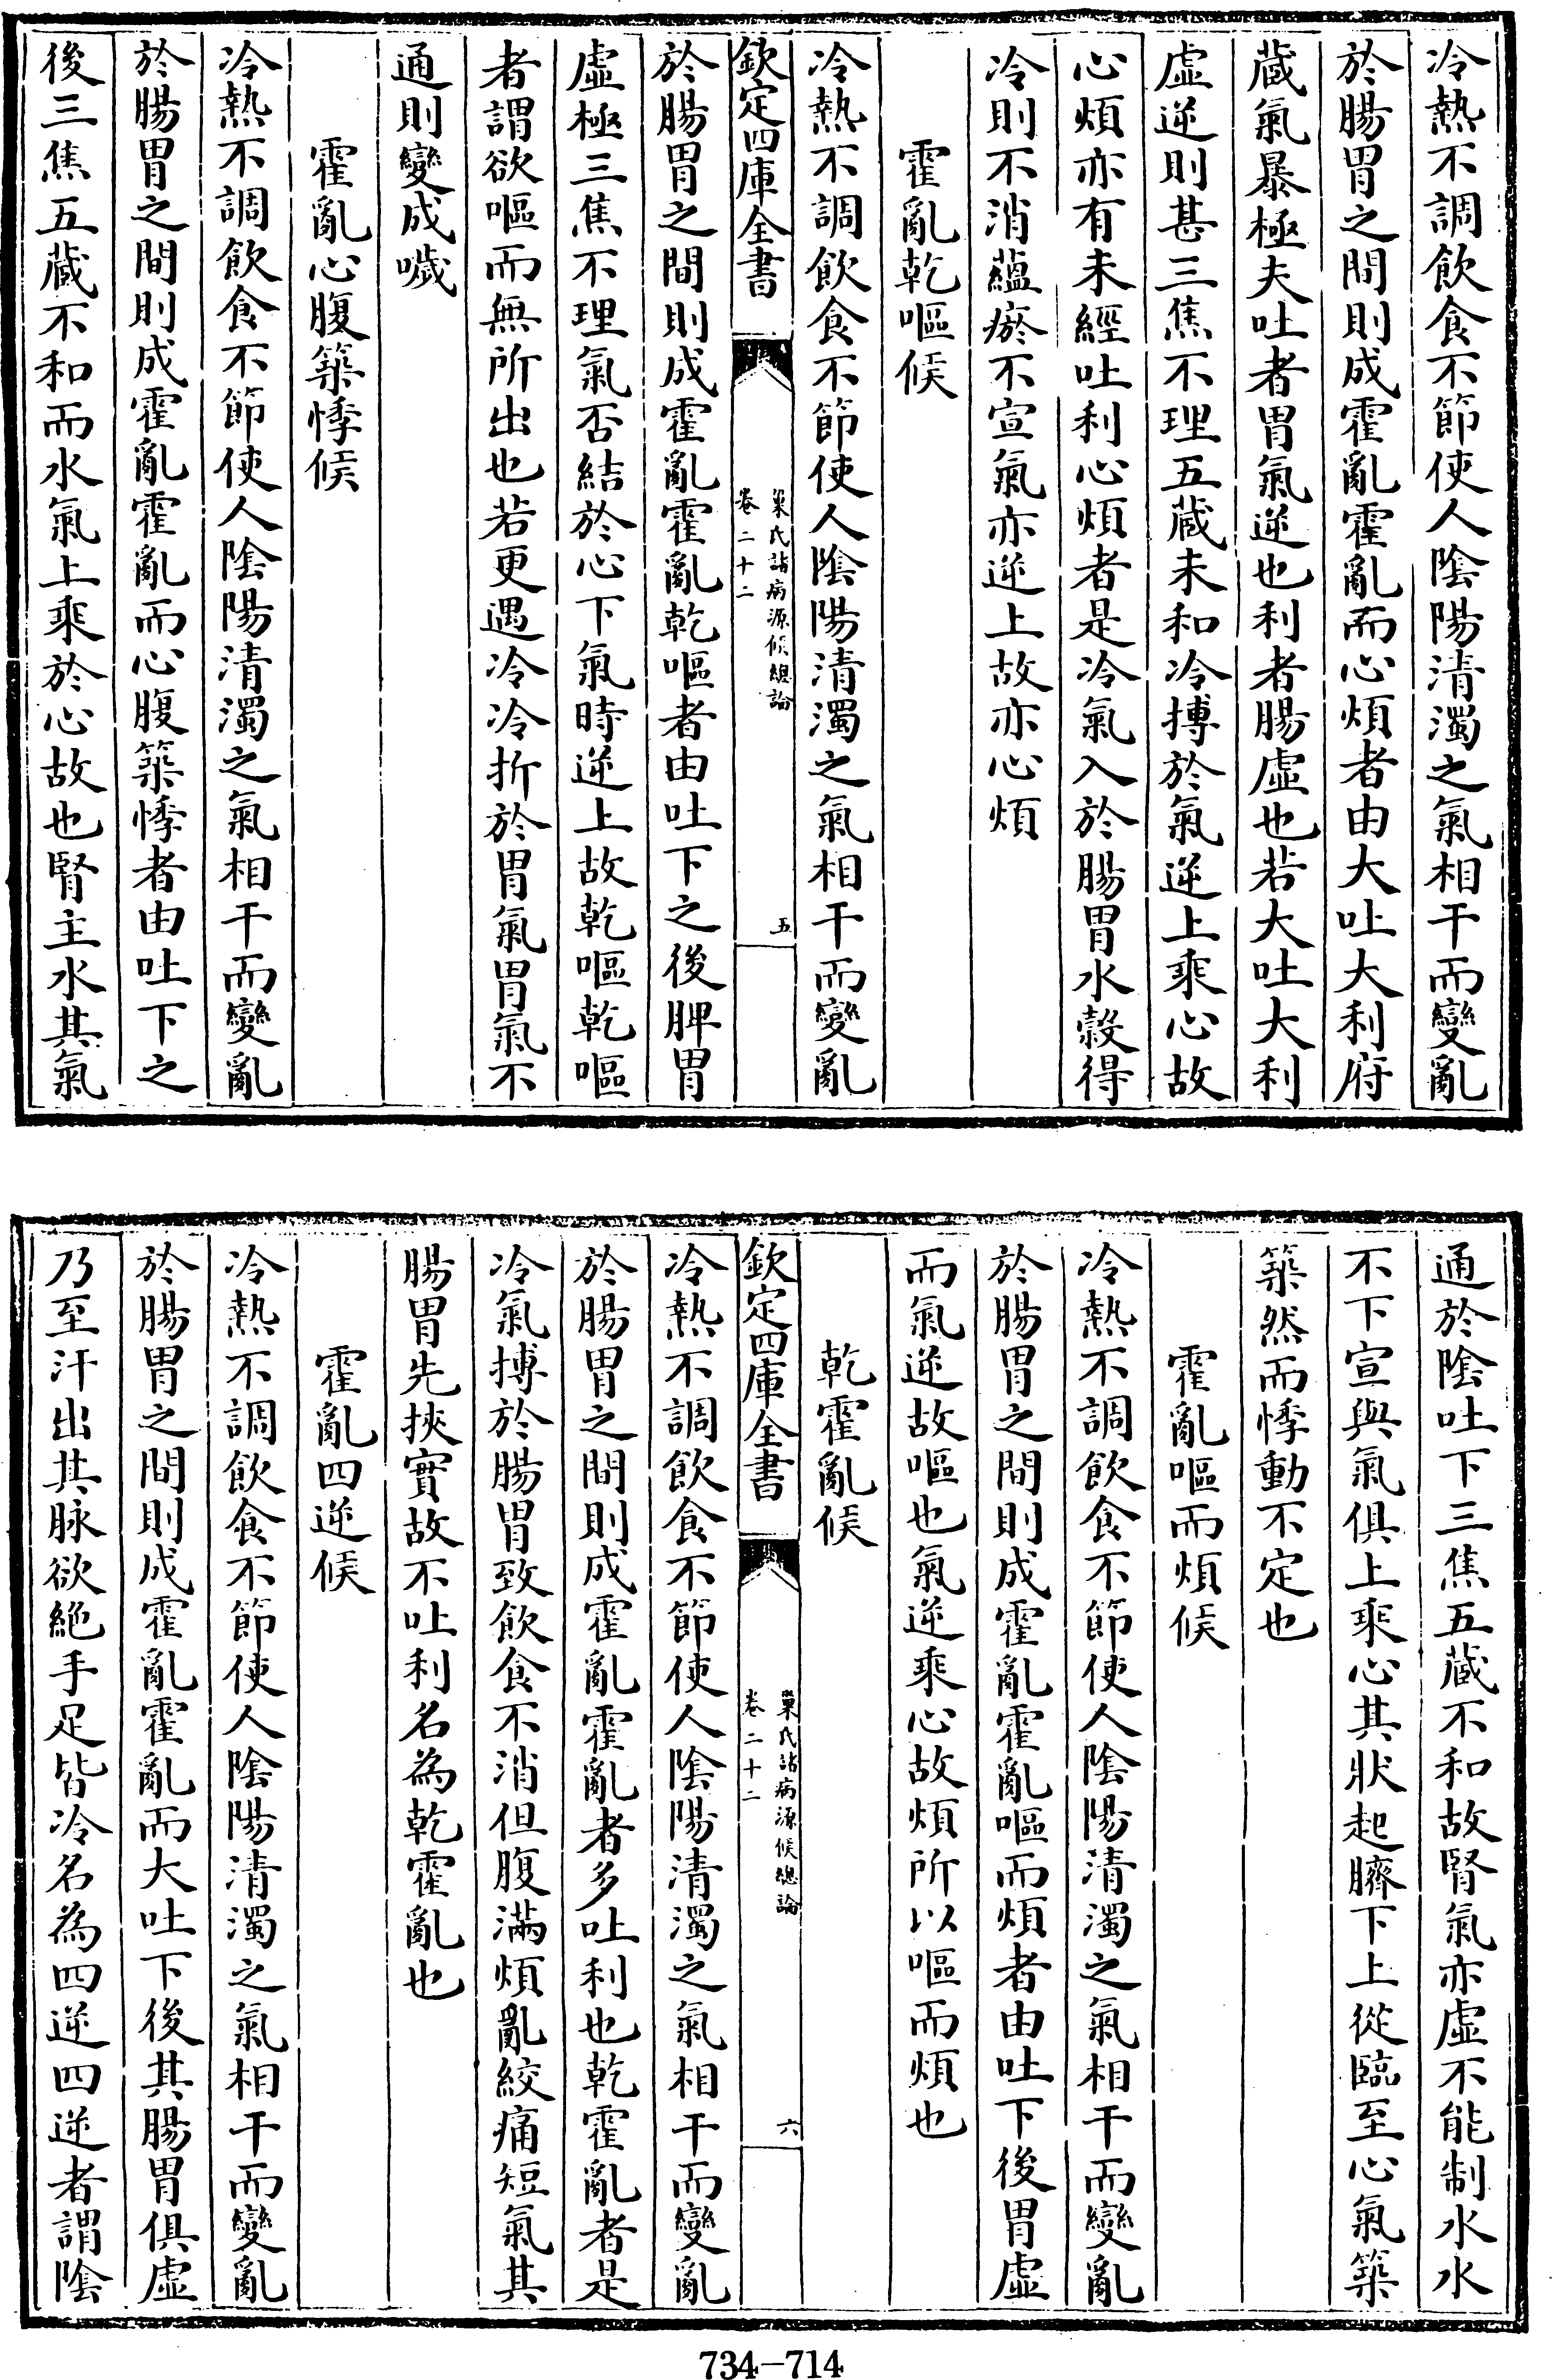 冷熱不調飲食不節使人陰陽清濁之氣相干而變亂
於腸胃之間則成霍亂霍亂而心煩者由大吐大利府
蔵氣暴極夫吐者胃氣逆也利者腸虛也若大吐大利
虛逆則甚三焦不理五蔵未和冷搏於氣逆上乘心故
心煩亦有未經吐利心煩者是冷氣入於腸胃水穀得
冷則不消蘊瘀不宣氣亦逆上故亦心煩
霍亂乾嘔候
冷熱不調飲食不節使人陰陽清濁之氣相干而變亂
欽定四庫全書
巢氏諸病源候總論
卷二十二
五
於腸胃之間則成霍亂霍亂乾嘔者由吐下之後脾胃
虛極三焦不理氣否結於心下氣時逆上故乾嘔乾嘔
者謂欲嘔而無所出也若更遇冷冷折於胃氣胃氣不
通則變成噦
霍亂心腹築悸候
冷熱不調飲食不節使人陰陽清濁之氣相干而變亂
於腸胃之間則成霍亂霍亂而心腹築悸者由吐下之
後三焦五蔵不和而水氣上乘於心故也腎主水其氣
通於陰吐下三焦五蔵不和故腎氣亦虛不能制水水
不下宣與氣俱上乘心其狀起臍下上從臨至心氣築
築然而悸動不定也
霍亂嘔而煩候
冷熱不調飲食不節使人陰陽清濁之氣相干而變亂
於腸胃之間則成霍亂霍亂嘔而煩者由吐下後胃虛
而氣逆故嘔也氣逆乘心故煩所以嘔而煩也
乾霍亂候
欽定四庫全書
巢氏諸病源候總論
卷二十二
六
冷熱不調飲食不節使人陰陽清濁之氣相干而變亂
於腸胃之間則成霍亂霍亂者多吐利也乾霍亂者是
冷氣搏於腸胃致飲食不消但腹滿煩亂絞痛短氣其
腸胃先挾實故不吐利名為乾霍亂也
霍亂四逆候
冷熱不調飲食不節使人陰陽清濁之氣相干而變亂
於腸胃之間則成霍亂霍亂而大吐下後其腸胃俱虛
乃至汗出其脉欲絶手足皆冷名為四逆四逆者謂陰
734-714